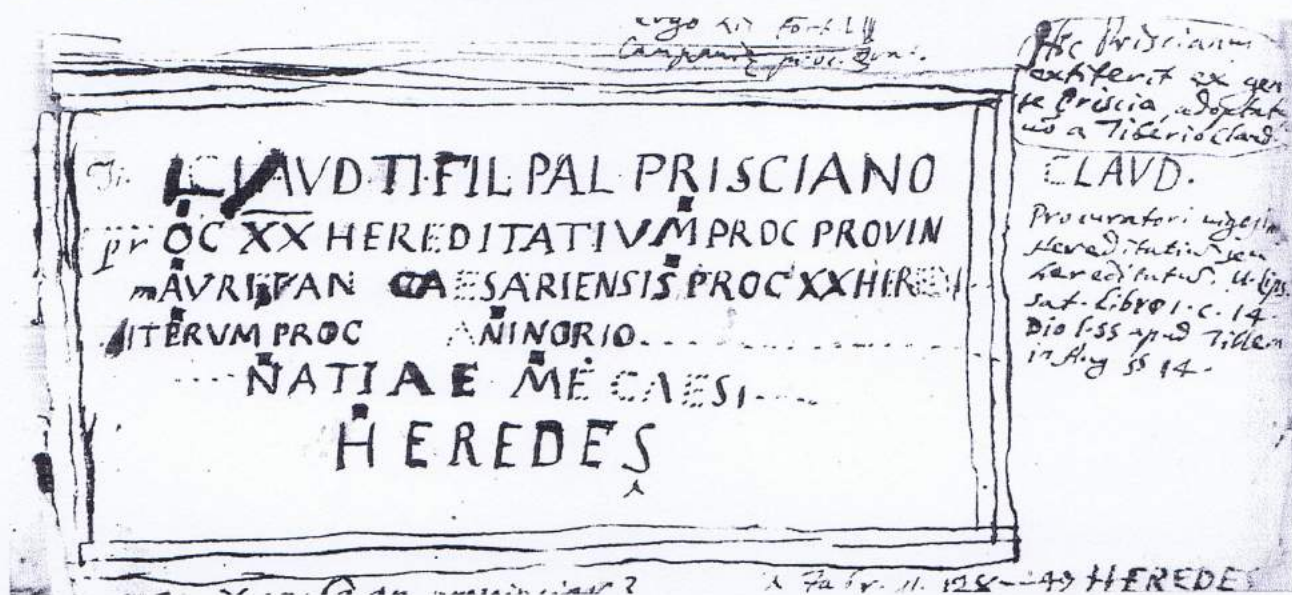 Campan proc.
Hic Priscianus
extiterit ex gen
te Priscia, adoptat
a Tiberio Claud.
Ti. CLAVD·TI·FIL PAL PRISCIANO
prOC XX HEREDITATIVM PROC PROVIN
mAVRETAN CAESARIENSIS PROC XX HEREDI
ITERVM PROC ANINORIO
NATIAE ME CAESI
HEREDES
CLAVD.
Procuratori vigesim
Hereditatium seu
hereditatum. U. Lips.
sat. Libro 1. c. 14
Dio l. 55 apud Tillem
in Aug § 14.
an provinciar?
Fabr. 128 - 249 HEREDE